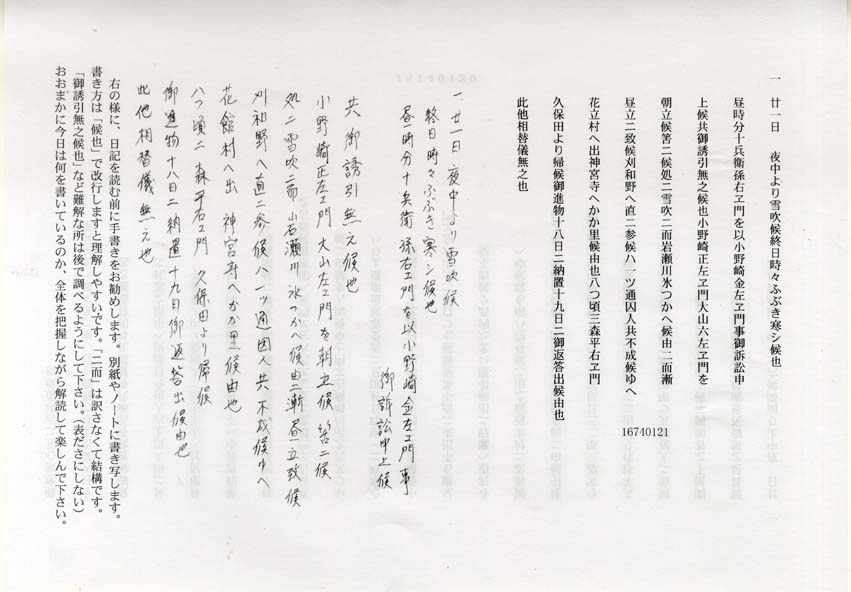 一　廿一日　夜中より雪吹候終日時々ふぶき寒シ候也
昼時分十兵衛孫右ヱ門を以小野崎金左ヱ門事御訴訟申
上候共御誘引無之候也小野崎正左ヱ門大山六左ヱ門を
朝立候筈ニ候処ニ雪吹ニ而岩瀬川氷つかへ候由ニ而漸
昼立ニ致候刈和野へ直ニ参候ハ一ツ通囚人共不成候ゆへ
花立村へ出神宮寺へかか里候由也八つ頃ニ森平右ヱ門
久保田より帰候御進物十八日ニ納置十九日ニ御返答出候由也
此他相替儀無之也
16740121
一、廿一日夜中より雪吹候
終日時々ふぶき寒シ候也
昼時分十兵衛孫右ヱ門を以小野崎金左ヱ門事
御訴訟申上候
共御誘引無之候也
小野崎正左ヱ門大山左ヱ門を朝立候筈ニ候
処ニ雪吹ニ而岩瀬川氷つかへ候由ニ漸昼立致候
刈和野へ直ニ参候ハ一ツ通囚人共不成候ゆへ
花館村へ出神宮寺へかか里候由也
八つ頃ニ森平右ヱ門久保田より帰候
御進物十八日ニ納置十九日御返答出候由也
此他相替儀無之也
右の様に、日記を読む前に手書きをお勧めします。別紙やノートに書き写します。
書き方は「候也」で改行しますと理解しやすいです。「ニ而」は訳さなくて結構です。
「御誘引無之候也」など難解な所は後で調べるようにして下さい。（表ださにしない）
おおまかに今日は何を書いているのか、全体を把握しながら解読して楽しんで下さい。